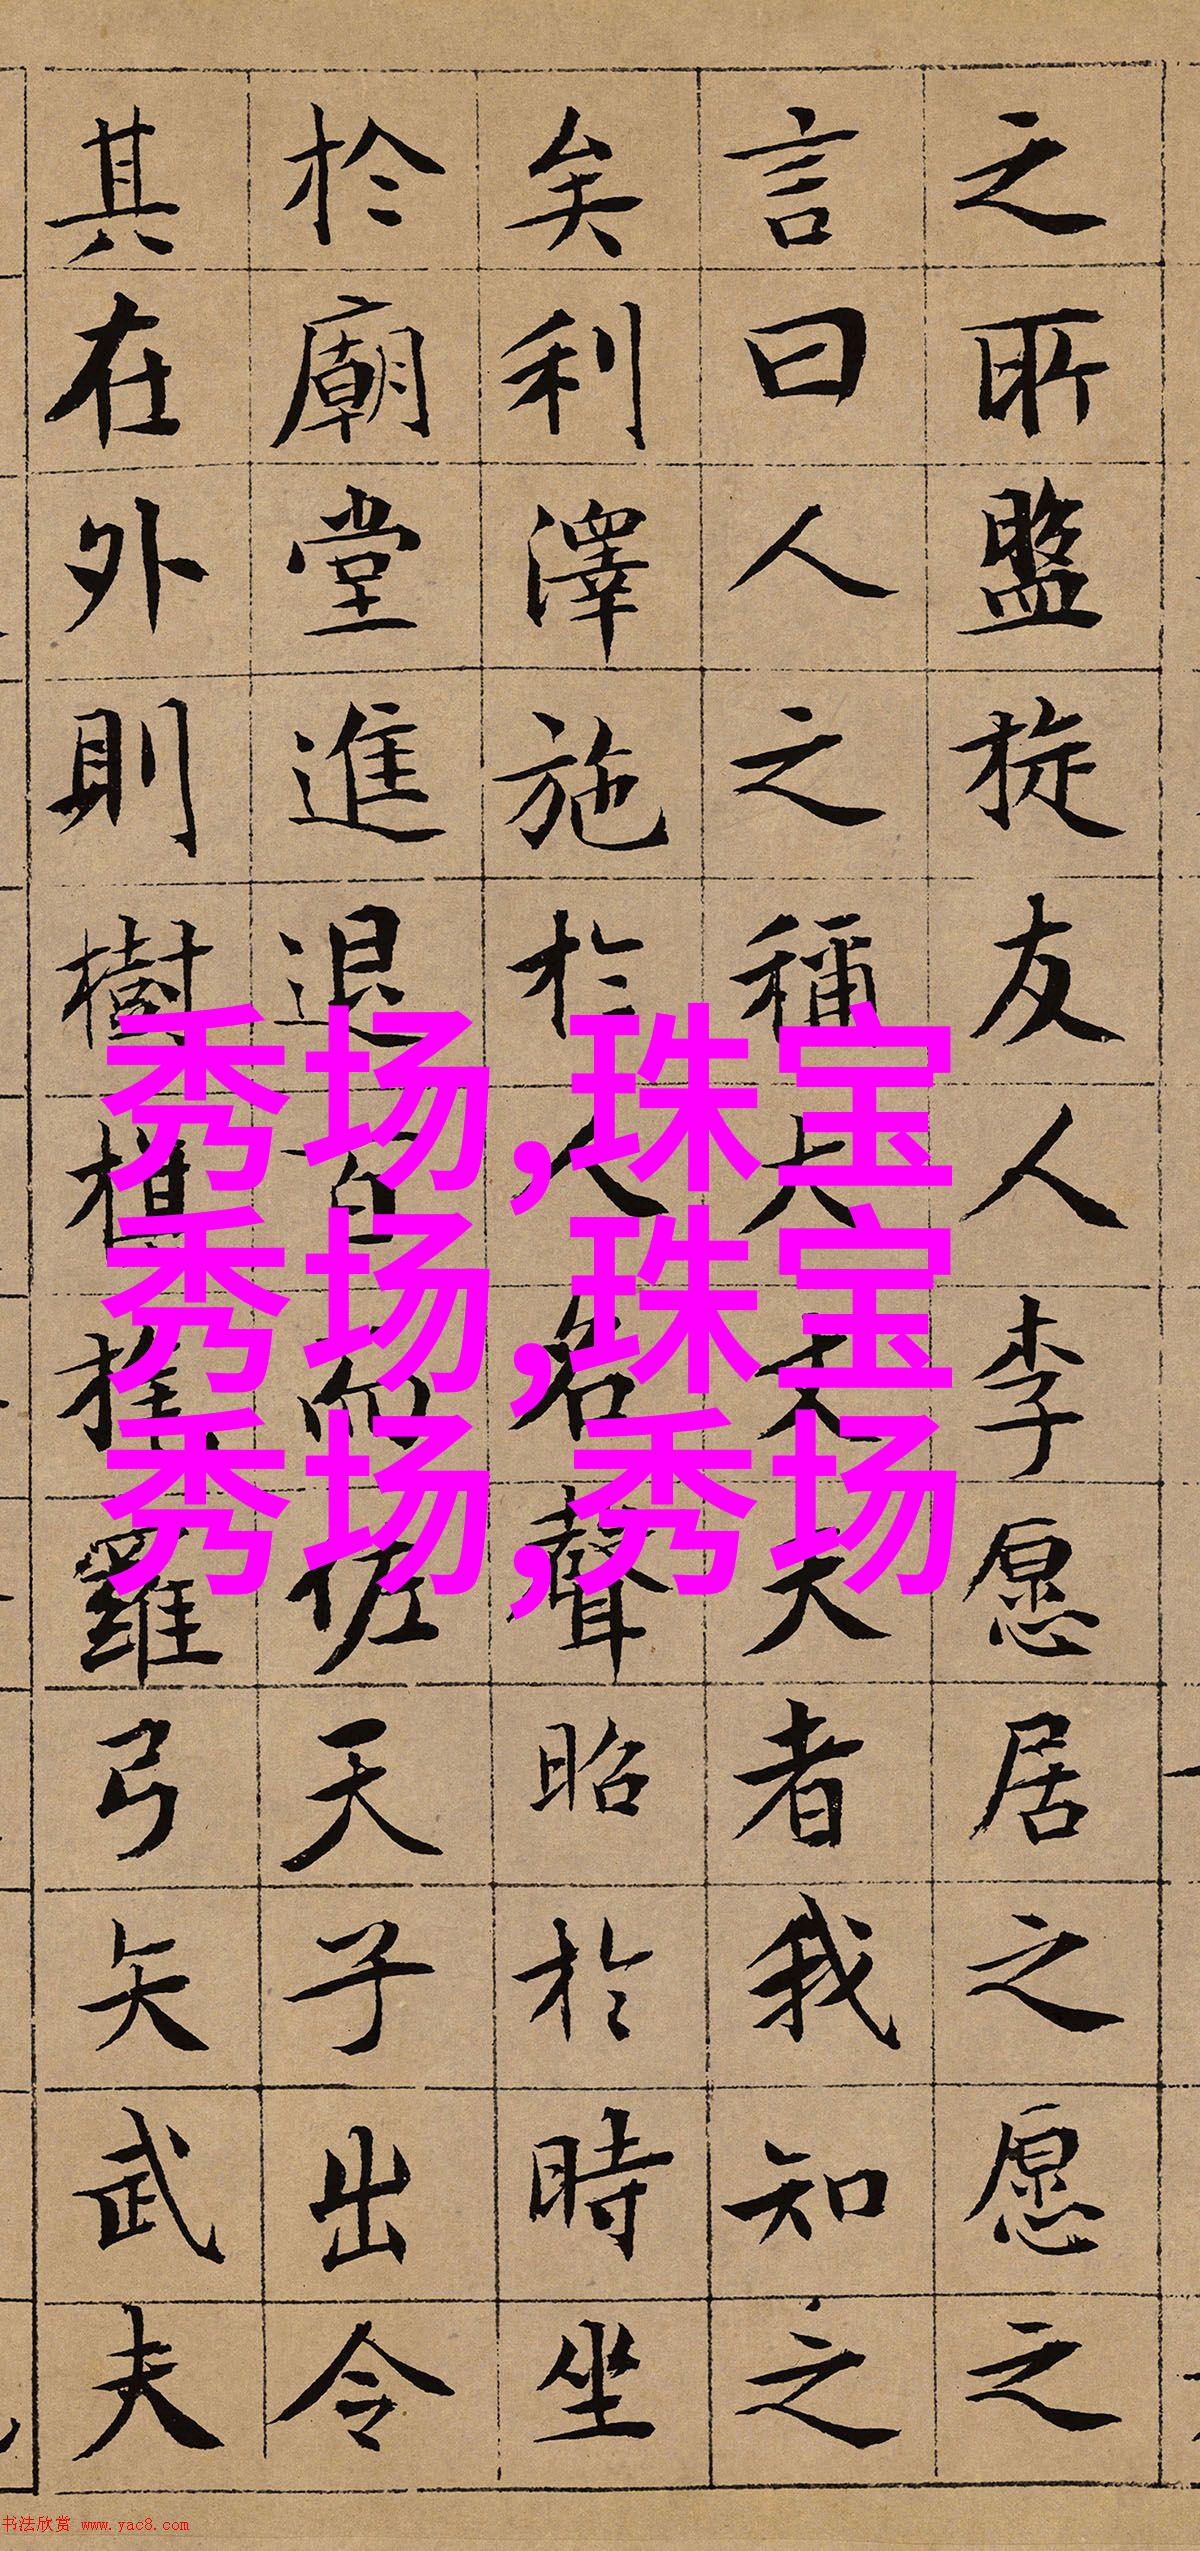 之所盤旋友人李愿居之愿之
言曰人之稱大丈夫者我知之
矣利澤施於人名聲昭於時坐
於廟堂進退百而佐天子出令
其在外則樹旗旄羅弓矢武夫
秀场,珠宝
秀场,珠宝
秀场,秀场
书法欣赏 www.yac8.com